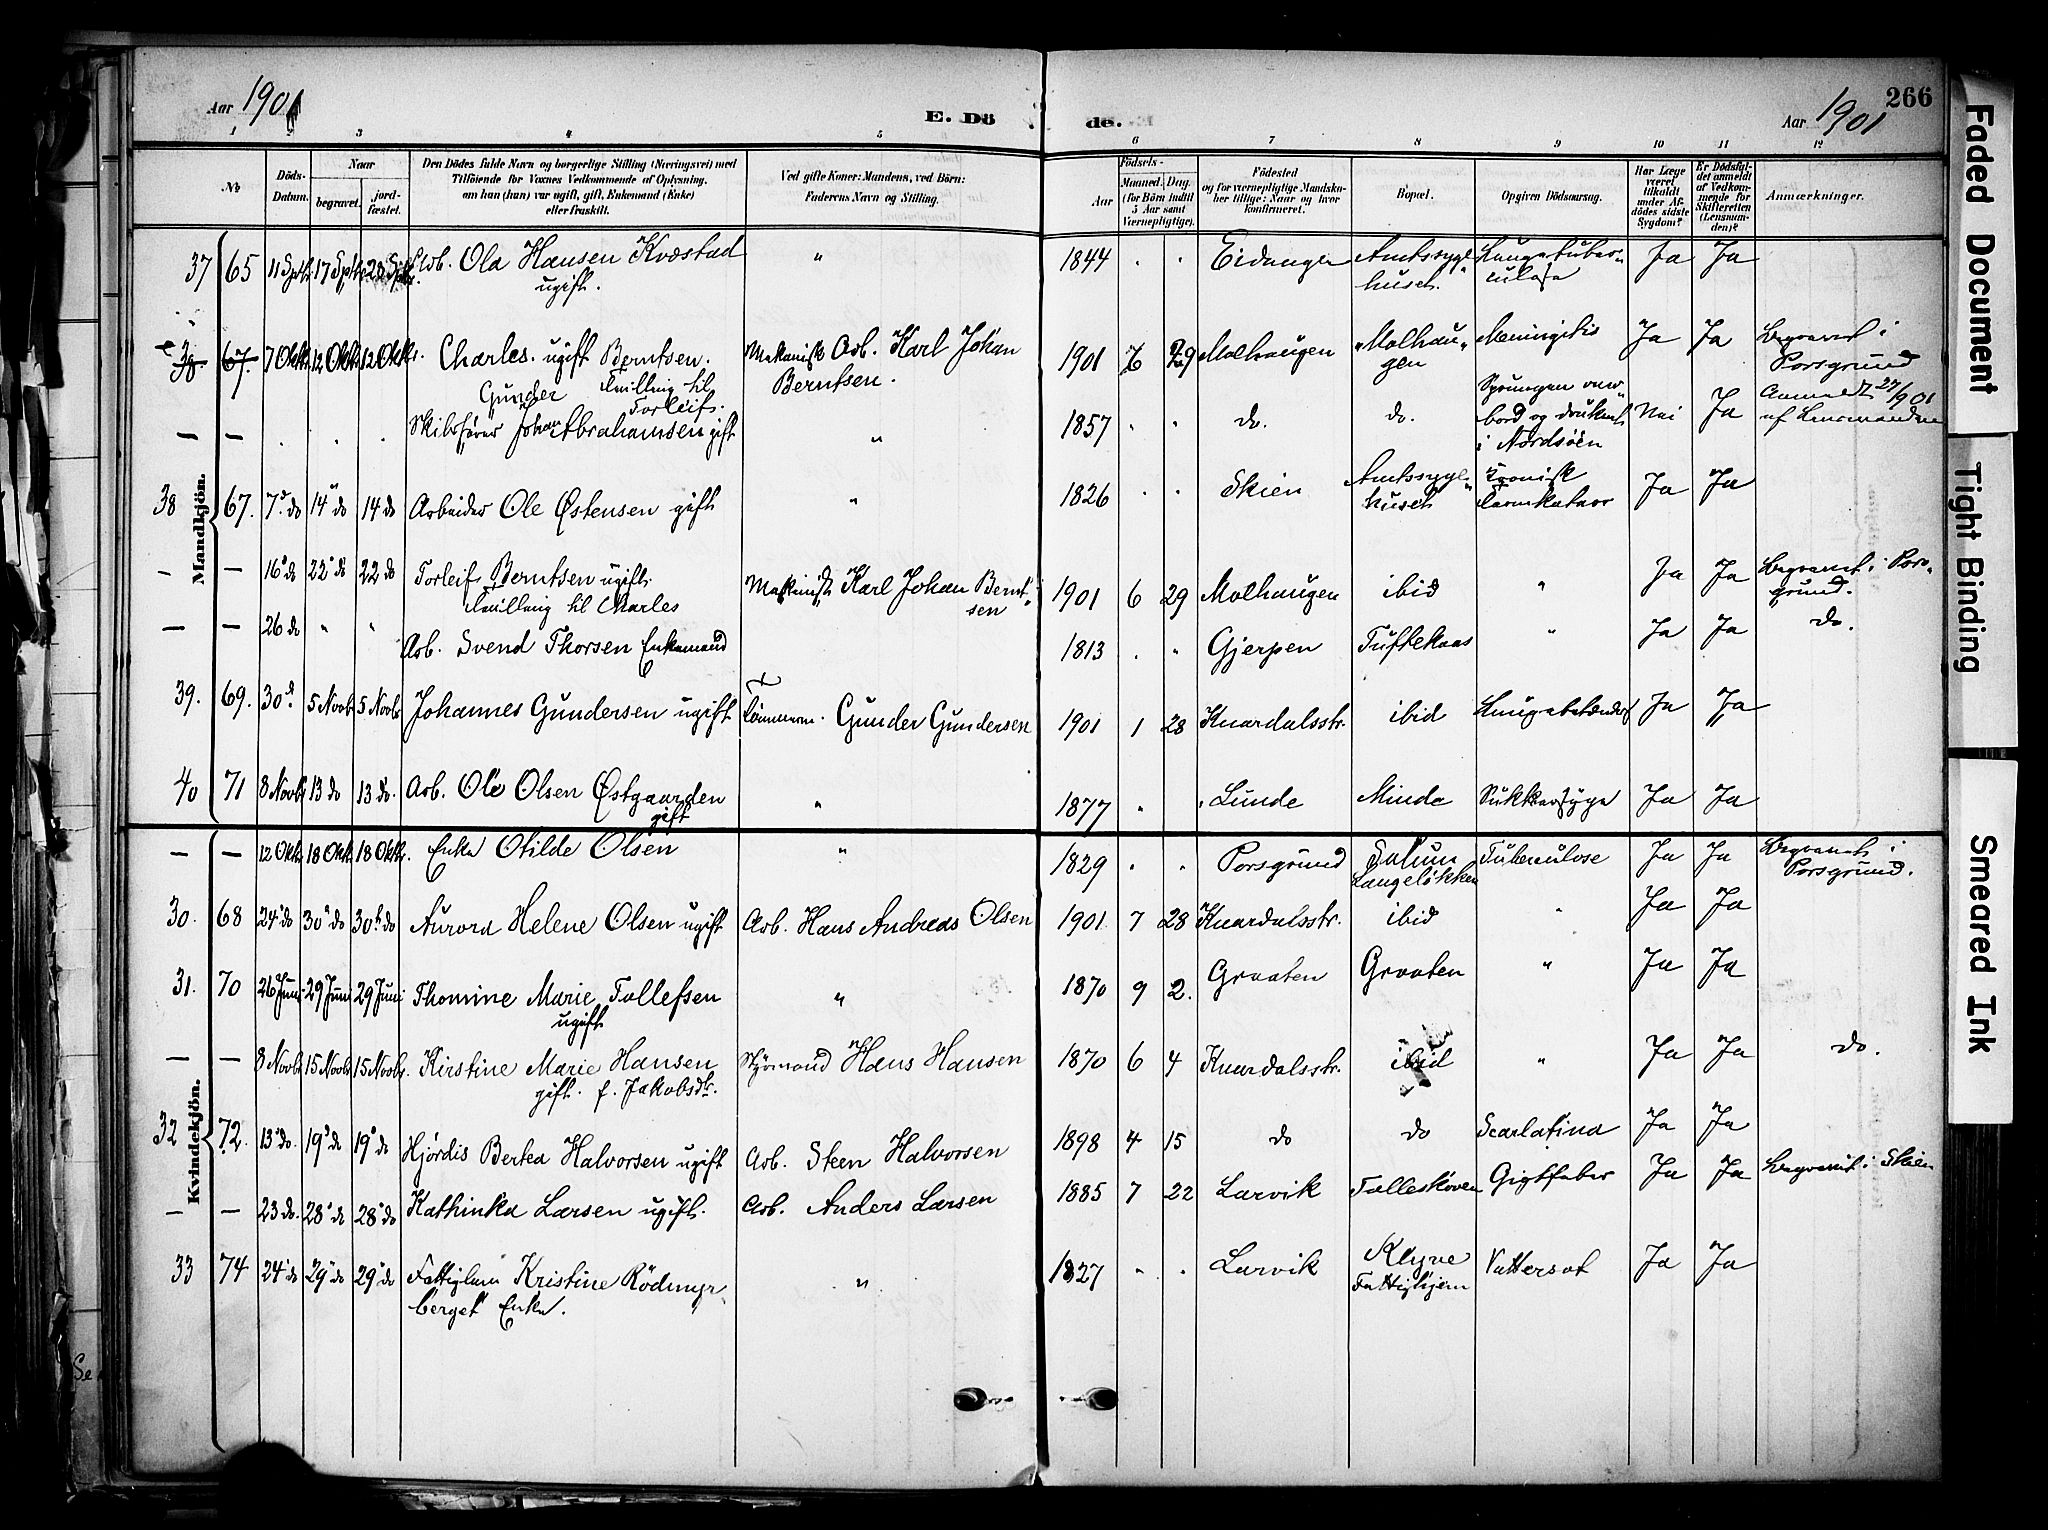 Aar 1901
E. Döde.
Aar 1901
266
1 2 3 4 5 6 7 8 9 10 11 12
No
Döds-Datum.
Naar
begravet.
jord-fæstet.
Den Dödes fulde Navn og borgerlige Stilling (Næringsvei) med
Tilföiende for Voxnes Vedkommende af Oplysning,
om han (hun) var ugift, gift, Enkemand (Enke)
eller fraskilt.
Ved gifte Koner: Mandens, ved Börn:
Faderens Navn og Stilling.
Födsels-
Aar
Maaned. Dag.
(for Börn indtil
5 Aar samt
Værnepligtige).
Födested
og for værnepligtige Mandskaber tillige: Naar og hvor konfirmeret.
Bopæl.
Opgiven Dödsaarsag.
Har Læge
været
tilkaldt
under Afdödes sidste
Sygdom?
Er Dödsfaldet anmeldt
af Vedkommende for
Skifteretten
(Lensmanden)?
Anmærkninger.
Mandkjön.
37 65 11 Septb. 17 Septb. Arb. Ola Hansen Kvæstad " 1844 Eidanger Amtssyge- Lungetuber- Ja Ja
ugift. huset. culose
67. 7 Oktb. 12 Oktb. 12 Oktb. Charles ugift Berntsen. Maskinist Arb. Karl Johan 1901 6 29 Molhaugen Molhau- Meningitis Ja Ja Begravet i
Tvilling til Berntsen. gen Porsgrund
Gunder Torleif.
Skibsfører Johan Abrahamsen gift " 1857 do. do. Sprungen over- Nei Ja Anmeldt 27/9 01
bord og druknet af Lensmanden
i Nordsöen
38 67. 7 do 14 do 14 do Arbeider Ole Østensen gift " 1826 Skien Amtssyge- Kronisk Ja Ja
huset Tarmkatarr
— — 16 do 22 do 22 do Torleif Berntsen ugift. Maskinist Karl Johan Bernt- 1901 6 29 Molhaugen ibid " Ja Ja Begravet i Pors-
Tvilling til Charles sen grund.
— — 26 do " " Arb. Svend Thorsen Enkemand 1813 Gjerpen Tuftekaas " Ja Ja do.
39. 69. 30 d 5 Novb. 5 Novb. Johannes Gundersen ugift Tömmerm. Gunder Gundersen 1901 1 28 Knardalsstr. ibid Lungebetændels Ja Ja
40 71 8 Novb. 13 do 13 do. Arb. Ole Olsen Østgaarden " 1877 Lunde Minde Sukkersyge Ja Ja
gift
Kvindekjön.
— — 12 Oktb. 18 Oktb. 18 Oktb. Enke Otilde Olsen " 1829 Porsgrund Solum Tuberculose Ja Ja Begravet i
Langeløkken Porsgrund.
30. 68 24 do 30 do 30 do Aurora Helene Olsen ugift Arb. Hans Andreas Olsen 1901 7 28 Knardalsstr. ibid " Ja Ja
31. 70 26 Juni 29 Juni 29 Juni Thomine Marie Tollefsen " 1870 9 2. Graaten Graaten " Ja Ja
ugift
— — 8 Novb. 15 Novb. 15 Novb. Kirstine Marie Hansen Styrmand Hans Hansen 1870 6 4 Knardalsstr. ibid " Ja Ja do.
gift. f. Jakobsdr.
32 72. 13 do. 19 do 19 do Hjördis Bertea Halvorsen ugift Arb. Steen Halvorsen 1898 4 15 do do Scarlatina Ja Ja
— — 23 do. 28 do 28 do Kathinka Larsen ugift. Arb. Anders Larsen 1885 7 22 Larvik Tolleskoven Gigtfeber Ja Ja Begravet i Skien
33 74 24 do 29 do 29 do Fattiglem Kristine Rödmyr- " 1827 Larvik Klyve Vattersot Ja Ja
berget Enke. Fattighjem
Faded Document
Tight Binding
Smeared Ink